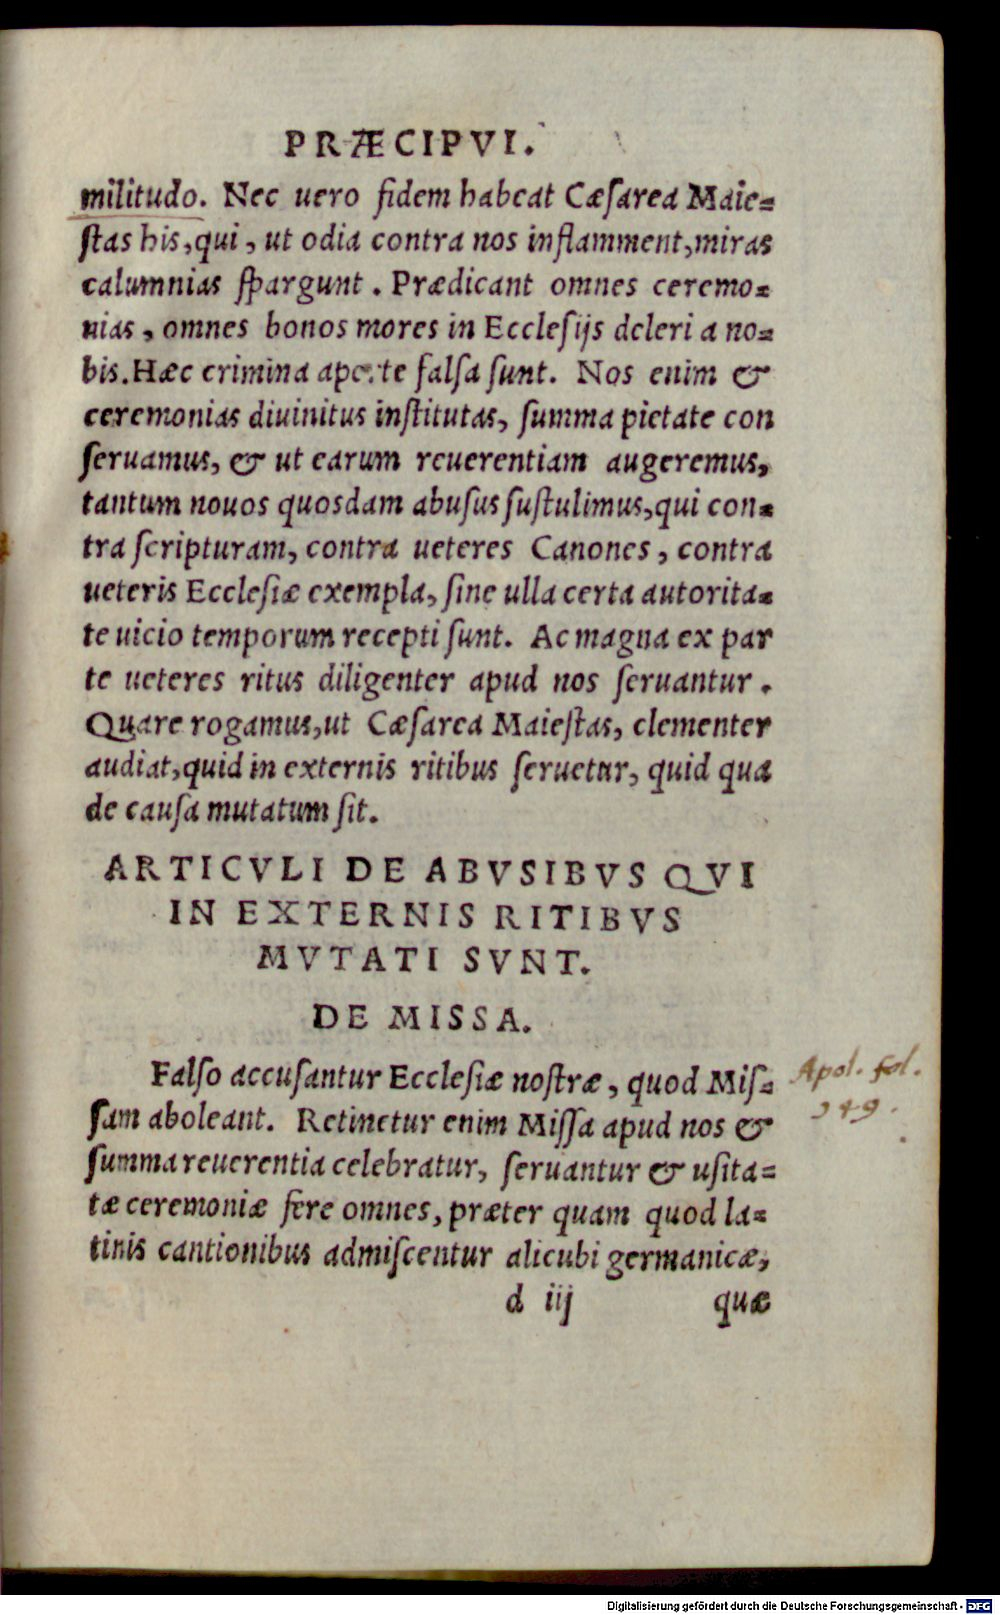 PRÆCIPVI.
militudo. Nec uero fidem habeat Cæsarea Maie=
ſtas his,qui, ut odia contra nos inflamment,miras
calumnias ſpargunt. Prædicant omnes ceremo=
nias, omnes bonos mores in Eccleſijs deleri a no=
bis.Hæc crimina aperte falſa ſunt. Nos enim &
ceremonias diuinitus inſtitutas, ſumma pietate con
ſeruamus, & ut earum reuerentiam augeremus,
tantum nouos quosdam abuſus ſuſtulimus,qui con=
tra ſcripturam, contra ueteres Canones, contra
ueteris Eccleſiæ exempla, ſine ulla certa autorita=
te uicio temporum recepti ſunt. Ac magna ex par
te ueteres ritus diligenter apud nos ſeruantur.
Quare rogamus,ut Cæſarea Maieſtas, clementer
audiat,quid in externis ritibus ſeruetur, quid qua
de cauſa mutatum ſit.
ARTICVLI DE ABVSIBVS QVI
IN EXTERNIS RITIBVS
MVTATI SVNT.
DE MISSA.
Falſo accuſantur Eccleſiæ noſtræ, quod Miſ=
ſam aboleant. Retinetur enim Miſſa apud nos &
ſumma reuerentia celebratur, ſeruantur & uſita=
tæ ceremoniæ fere omnes, præter quam quod la=
tinis cantionibus admiſcentur alicubi germanicæ,
d iij quæ
Apol. fol.
249.
Digitalisierung gefördert durch die Deutsche Forschungsgemeinschaft - DFG